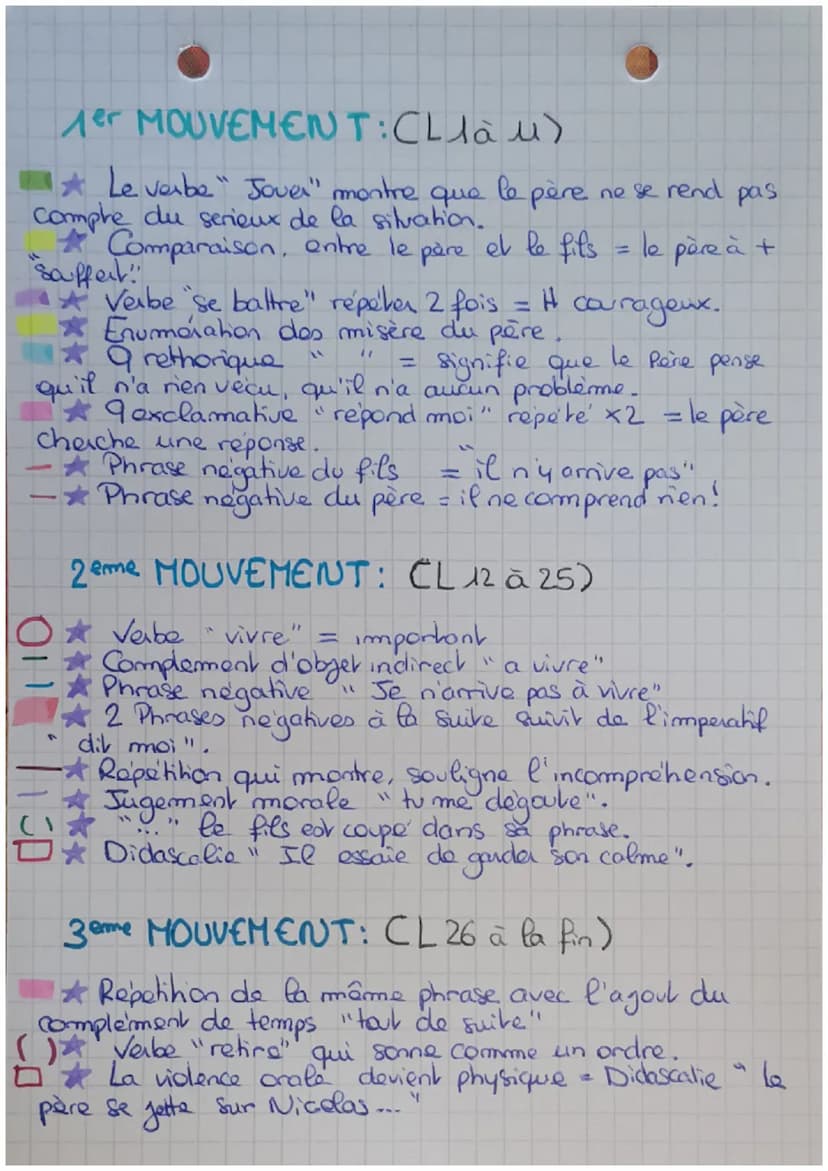 1er MOUVEMENT: (L1 à 11)
★ Le verbe "Jouer" montre que le père ne se rend pas
compte du serieux de la situation.
★ Comparaison, entre le père et le fils = le père à +
"saffert".
★ Verbe "se battre" répéter 2 fois = H courageux.
★ Enumération des misère du père.
★ Q rethorique " " = signifie que le Père pense
qu'il n'a rien vécu, qu'il n'a aucun problème.
★ q exclamative "répond moi" répété x2 = le père
cherche une réponse.
★ Phrase négative du fils = "il n'y arrive pas"
★ Phrase négative du père = il ne comprend rien!
2eme MOUVEMENT: (L 12 à 25)
★ Verbe "vivre" = important
★ Complement d'objet indirect "a vivre"
★ Phrase négative "Je n'arrive pas à vivre"
★ 2 Phrases négatives à la suite suivit de l'imperatif
"dit moi".
★ Répétition qui montre, souligne l'incompréhension.
★ Jugement morale "tu me dégoute".
( ) ★ "..." le fils est coupé dans sa phrase.
★ Didascalie "Il essaie de garder son calme".
3eme MOUVEMENT: (L 26 à la fin)
★ Répétition de la même phrase avec l'ajout du
complément de temps "tout de suite"
( ) ★ Verbe "retire" qui sonne comme un ordre.
★ La violence orale devient physique = Didascalie "le
père se jette sur Nicolas..."